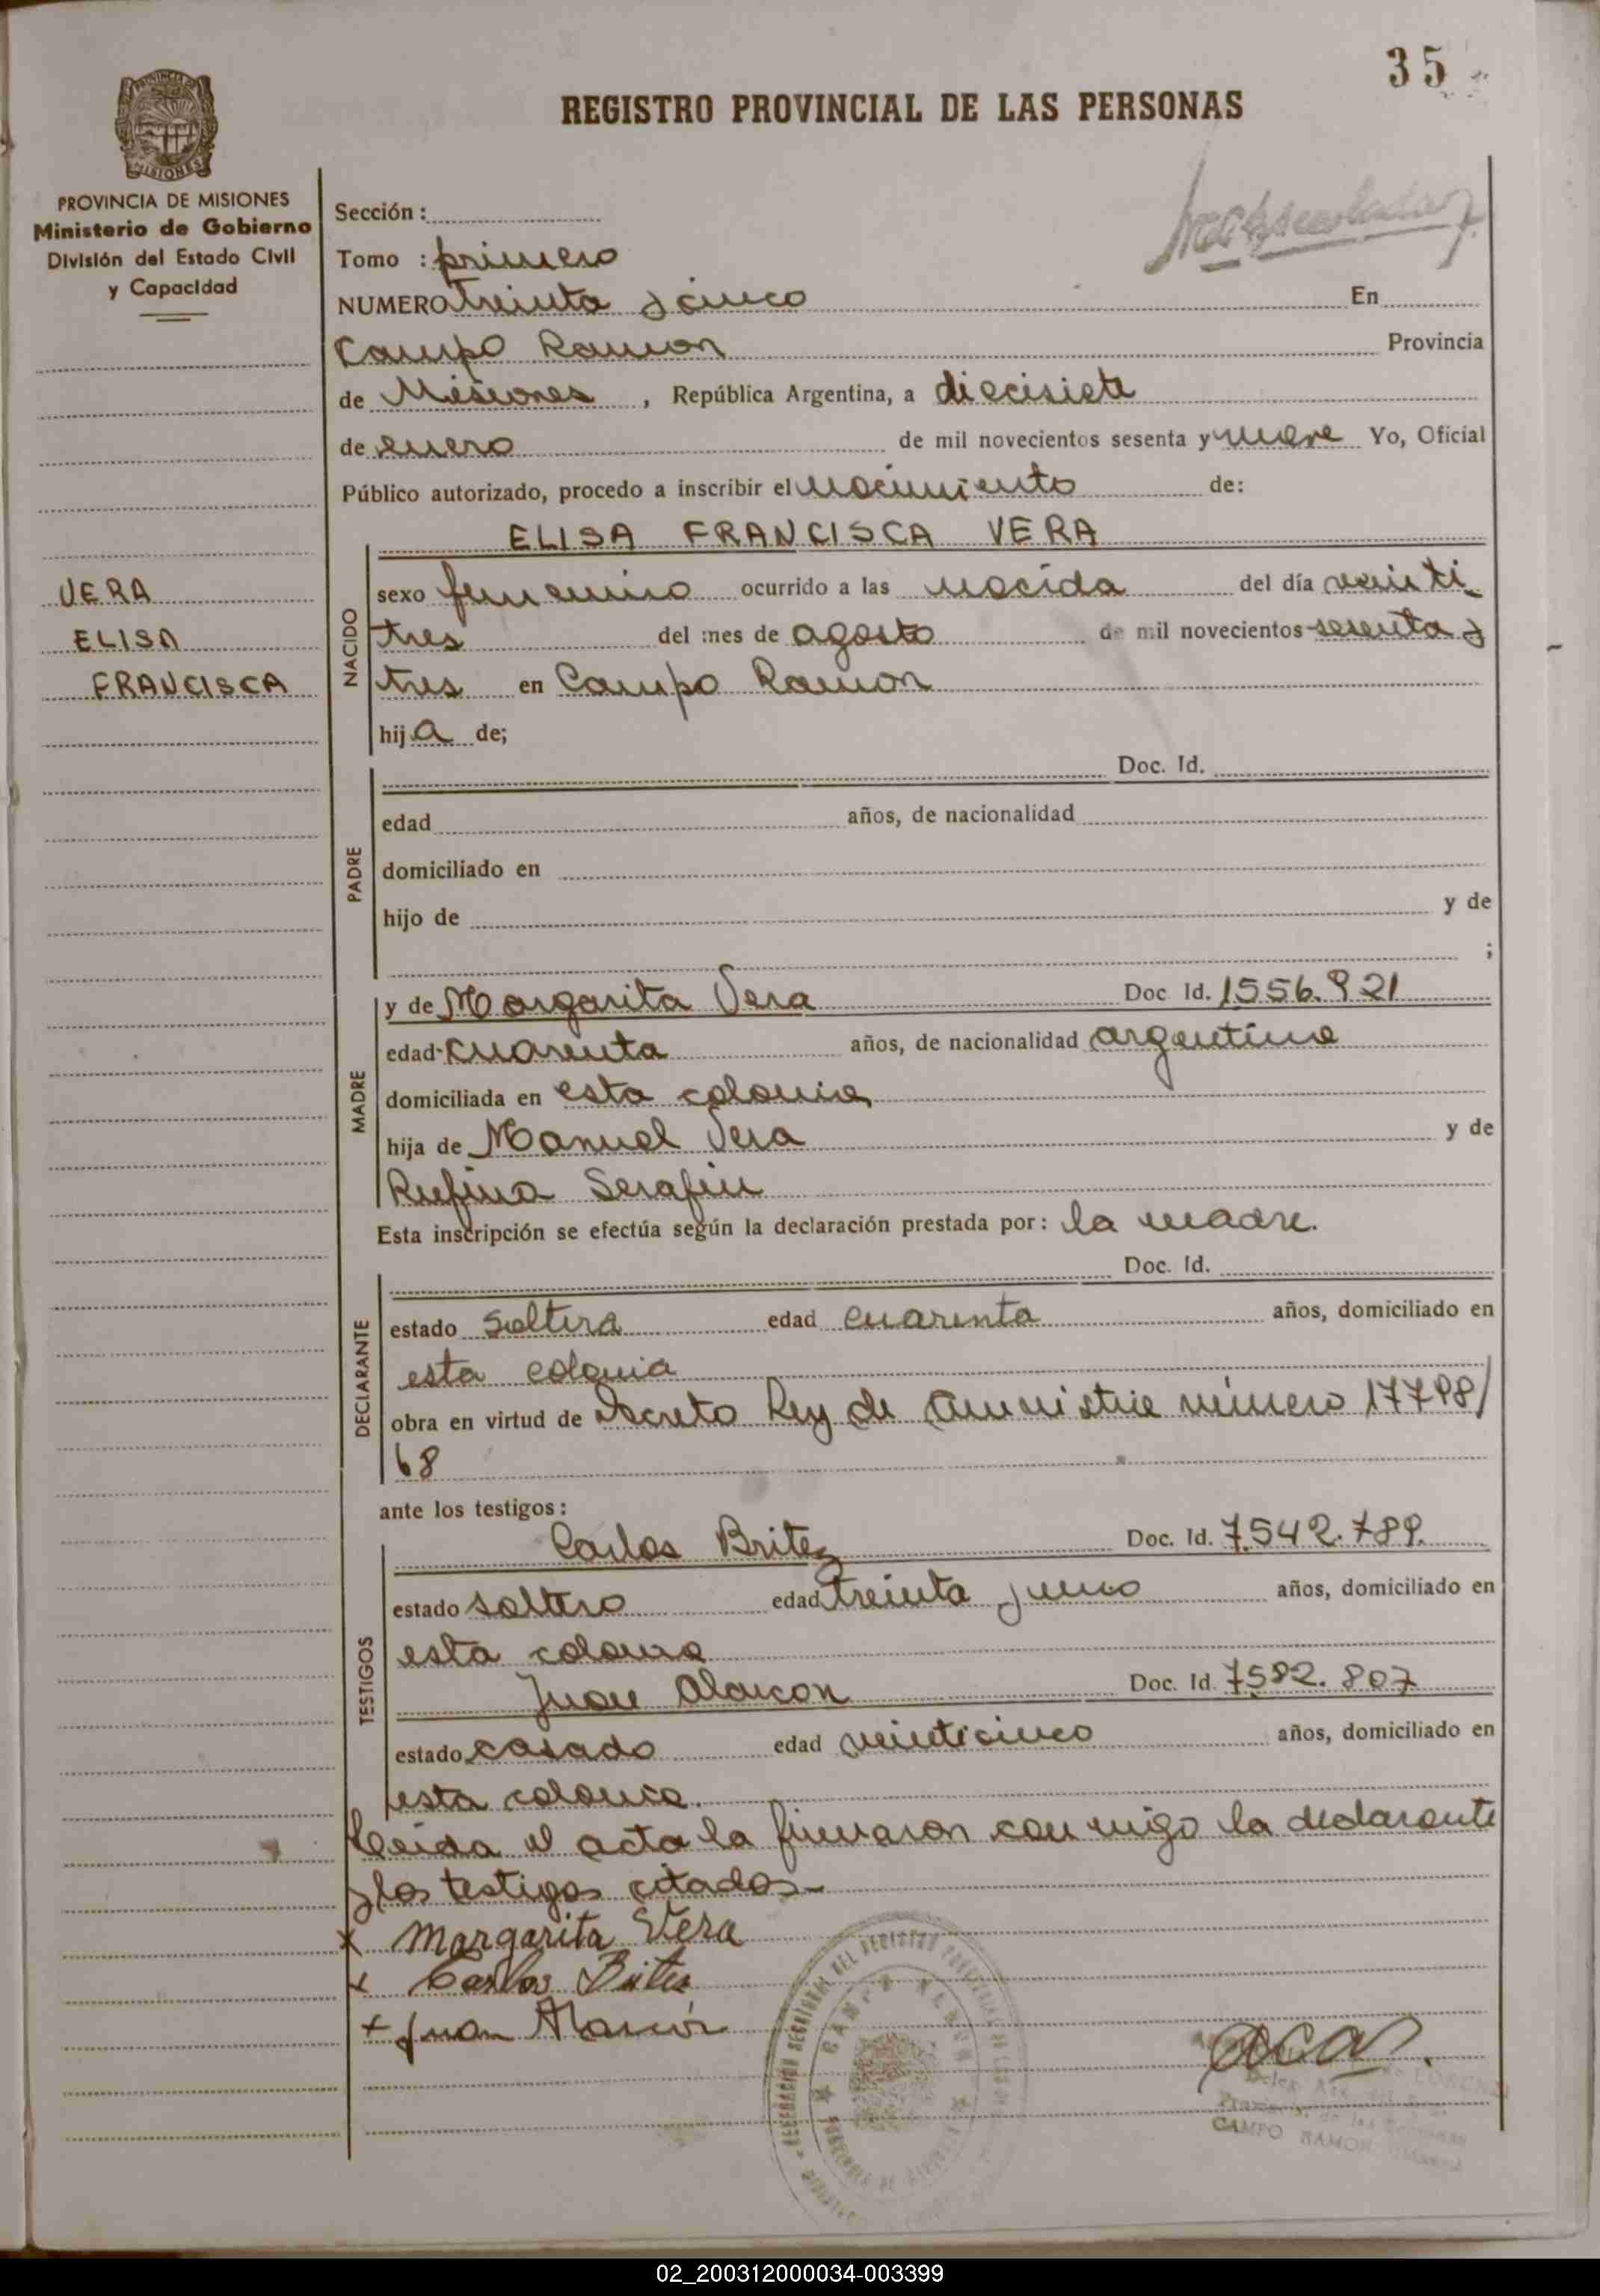 35
REGISTRO PROVINCIAL DE LAS PERSONAS
PROVINCIA DE MISIONES
Ministerio de Gobierno
División del Estado Civil
y Capacidad
Sección:
Tomo : primero
NUMERO Treinta y cinco En
Campo Ramon Provincia
de Misiones, República Argentina, a diecisiete
de enero de mil novecientos sesenta y nueve Yo, Oficial
Público autorizado, procedo a inscribir el nacimiento de:
ELISA FRANCISCA VERA
VERA
ELISA
FRANCISCA
NACIDO
sexo femenino ocurrido a las nacida del día veinti
tres del mes de agosto de mil novecientos sesenta y
tres en Campo Ramon
hija de;
PADRE
Doc. Id.
edad años, de nacionalidad
domiciliado en
hijo de y de
;
MADRE
y de Margarita Vera Doc Id. 1556.921
edad cuarenta años, de nacionalidad argentina
domiciliada en esta colonia
hija de Manuel Vera y de
Rufina Serafin
Esta inscripción se efectúa según la declaración prestada por: la madre.
DECLARANTE
Doc. Id.
estado Soltera edad cuarenta años, domiciliado en
esta colonia
obra en virtud de Decreto Ley de Amnistia número 17798/
68
ante los testigos:
TESTIGOS
Carlos Britez Doc. Id. 7.542.789.
estado soltero edad treinta y uno años, domiciliado en
esta colonia
Juan Alarcon Doc. Id. 7582.807
estado casado edad veinticinco años, domiciliado en
esta colonia.
Leida el acta la firmaron con migo la declarante
y los testigos citados.-
x Margarita Vera
x Carlos Britez
x Juan Alarcón
CAMPO RAMON
02_200312000034-003399